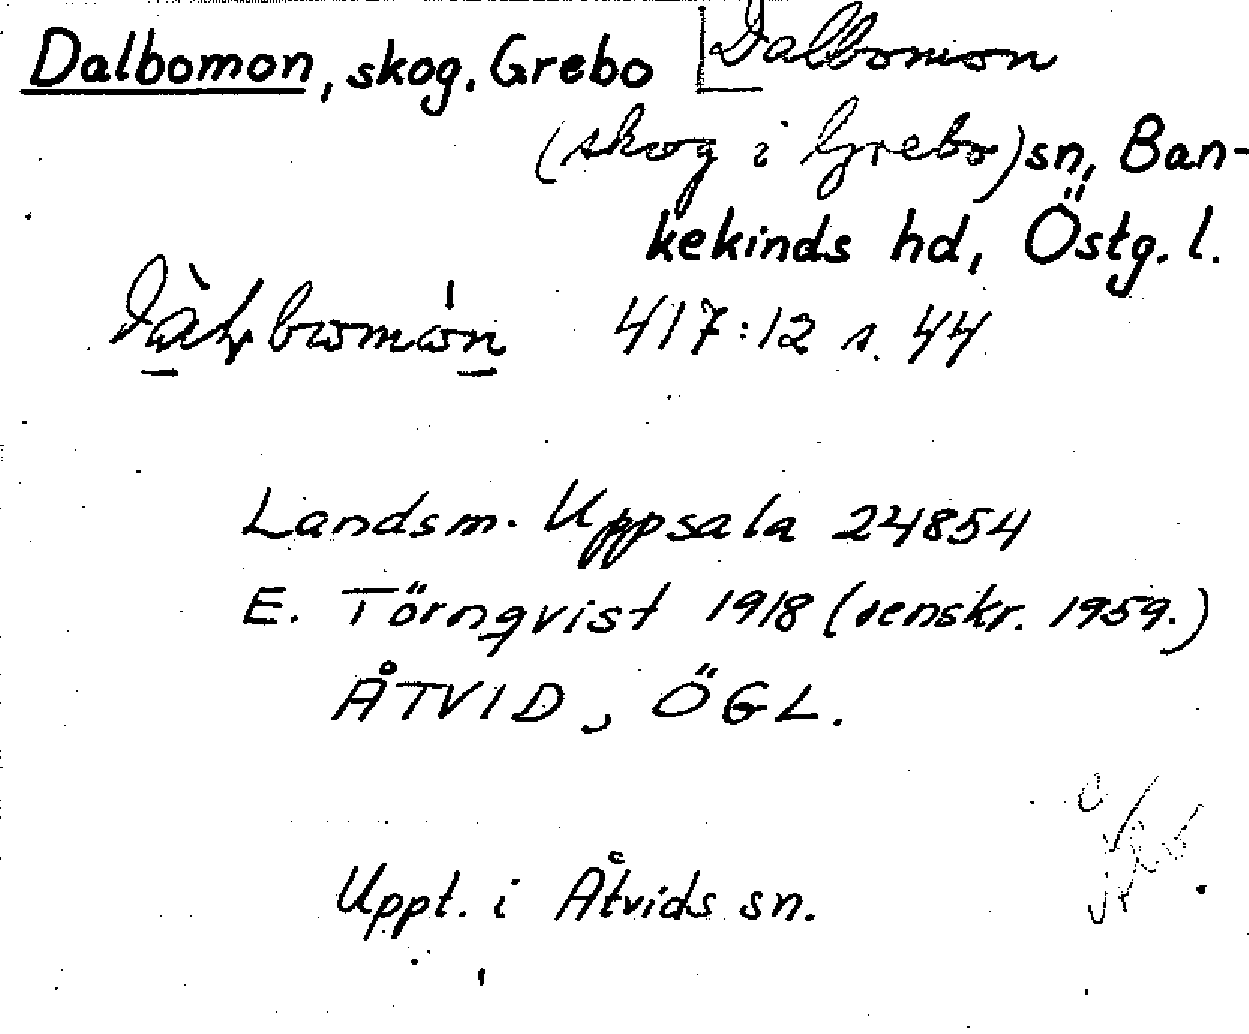 Dalbomon, skog, Grebo Dalbomon
(skog i Grebo) sn, Ban-
kekinds hd, Östg. l.
417:12 s. 44
Landsm. Uppsala 24854
E. Törnqvist 1918 (renskr. 1959.)
ÅTVID, ÖGL.
Uppt. i Åtvids sn.